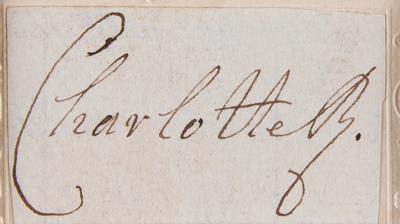 Charlotte R.